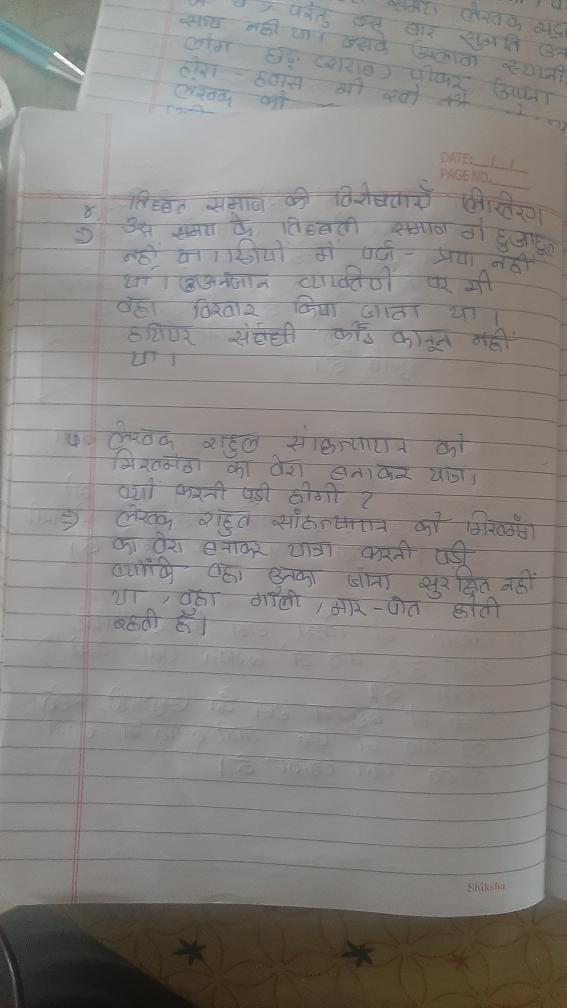 समय लेखक
परंतु उस बार सुमति उन
साथ नहीं था। उसके अलावा स्थानी
लोग छङ् (शराब) पीकर अपना
होश-हवास भी खो
लेखक को
DATE: / /
PAGE NO.
४. तिब्बत समाज की विशेषताएँ लिखिए।
⇒ उस समय के तिब्बती समाज में छुआछूत
नहीं था। स्त्रियों में पर्दा-प्रथा नहीं
था। अनजान व्यक्तियों पर भी
वहा विश्वार किया जाता था।
हथियार संबंधी कोई कानून नहीं
था।
५. लेखक राहुल सांकृत्यायन को
भिखमंगे का वेश बनाकर यात्रा
क्यों करनी पड़ी होगी ?
⇒ लेखक राहुल सांकृत्यायन को भिखमंगे
का वेश बनाकर यात्रा करनी पड़ी
क्योंकि वहा उनका जाना सुरक्षित नहीं
था, वहा गोली, मार-पीत होती
रहती हैं।
Shiksha